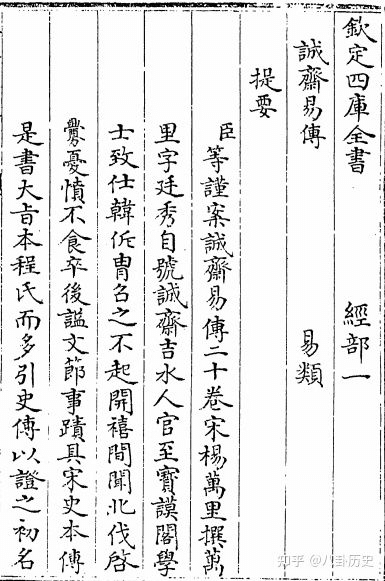 欽定四庫全書 經部一
誠齋易傳 易類
提要
臣等謹案誠齋易傳二十卷宋楊萬里撰萬
里字廷秀自號誠齋吉水人官至寳謨閣學
士致仕韓侂胄召之不起開禧間聞北伐啓
釁憂憤不食卒後謚文節事蹟具宋史本傳
是書大旨本程氏而多引史傳以證之初名
知乎 @八卦历史